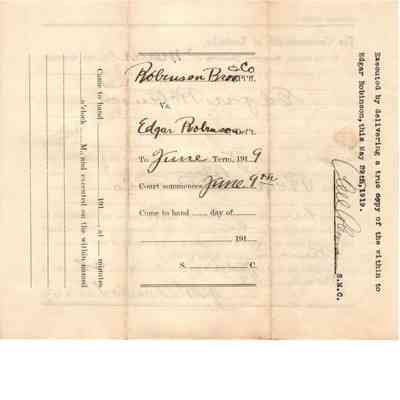 Robinson Bros & Co Pl'ff.
Vs
Edgar Robinson Def't.
To June Term, 1919
Court commences June 9th
Come to hand day of
191
S. C.
Came to hand 191 , at minutes
o'clock M., and executed on the within-named
Executed by delivering a true copy of the within to
Edgar Robinson, this May 29th, 1919.
S.M.C.